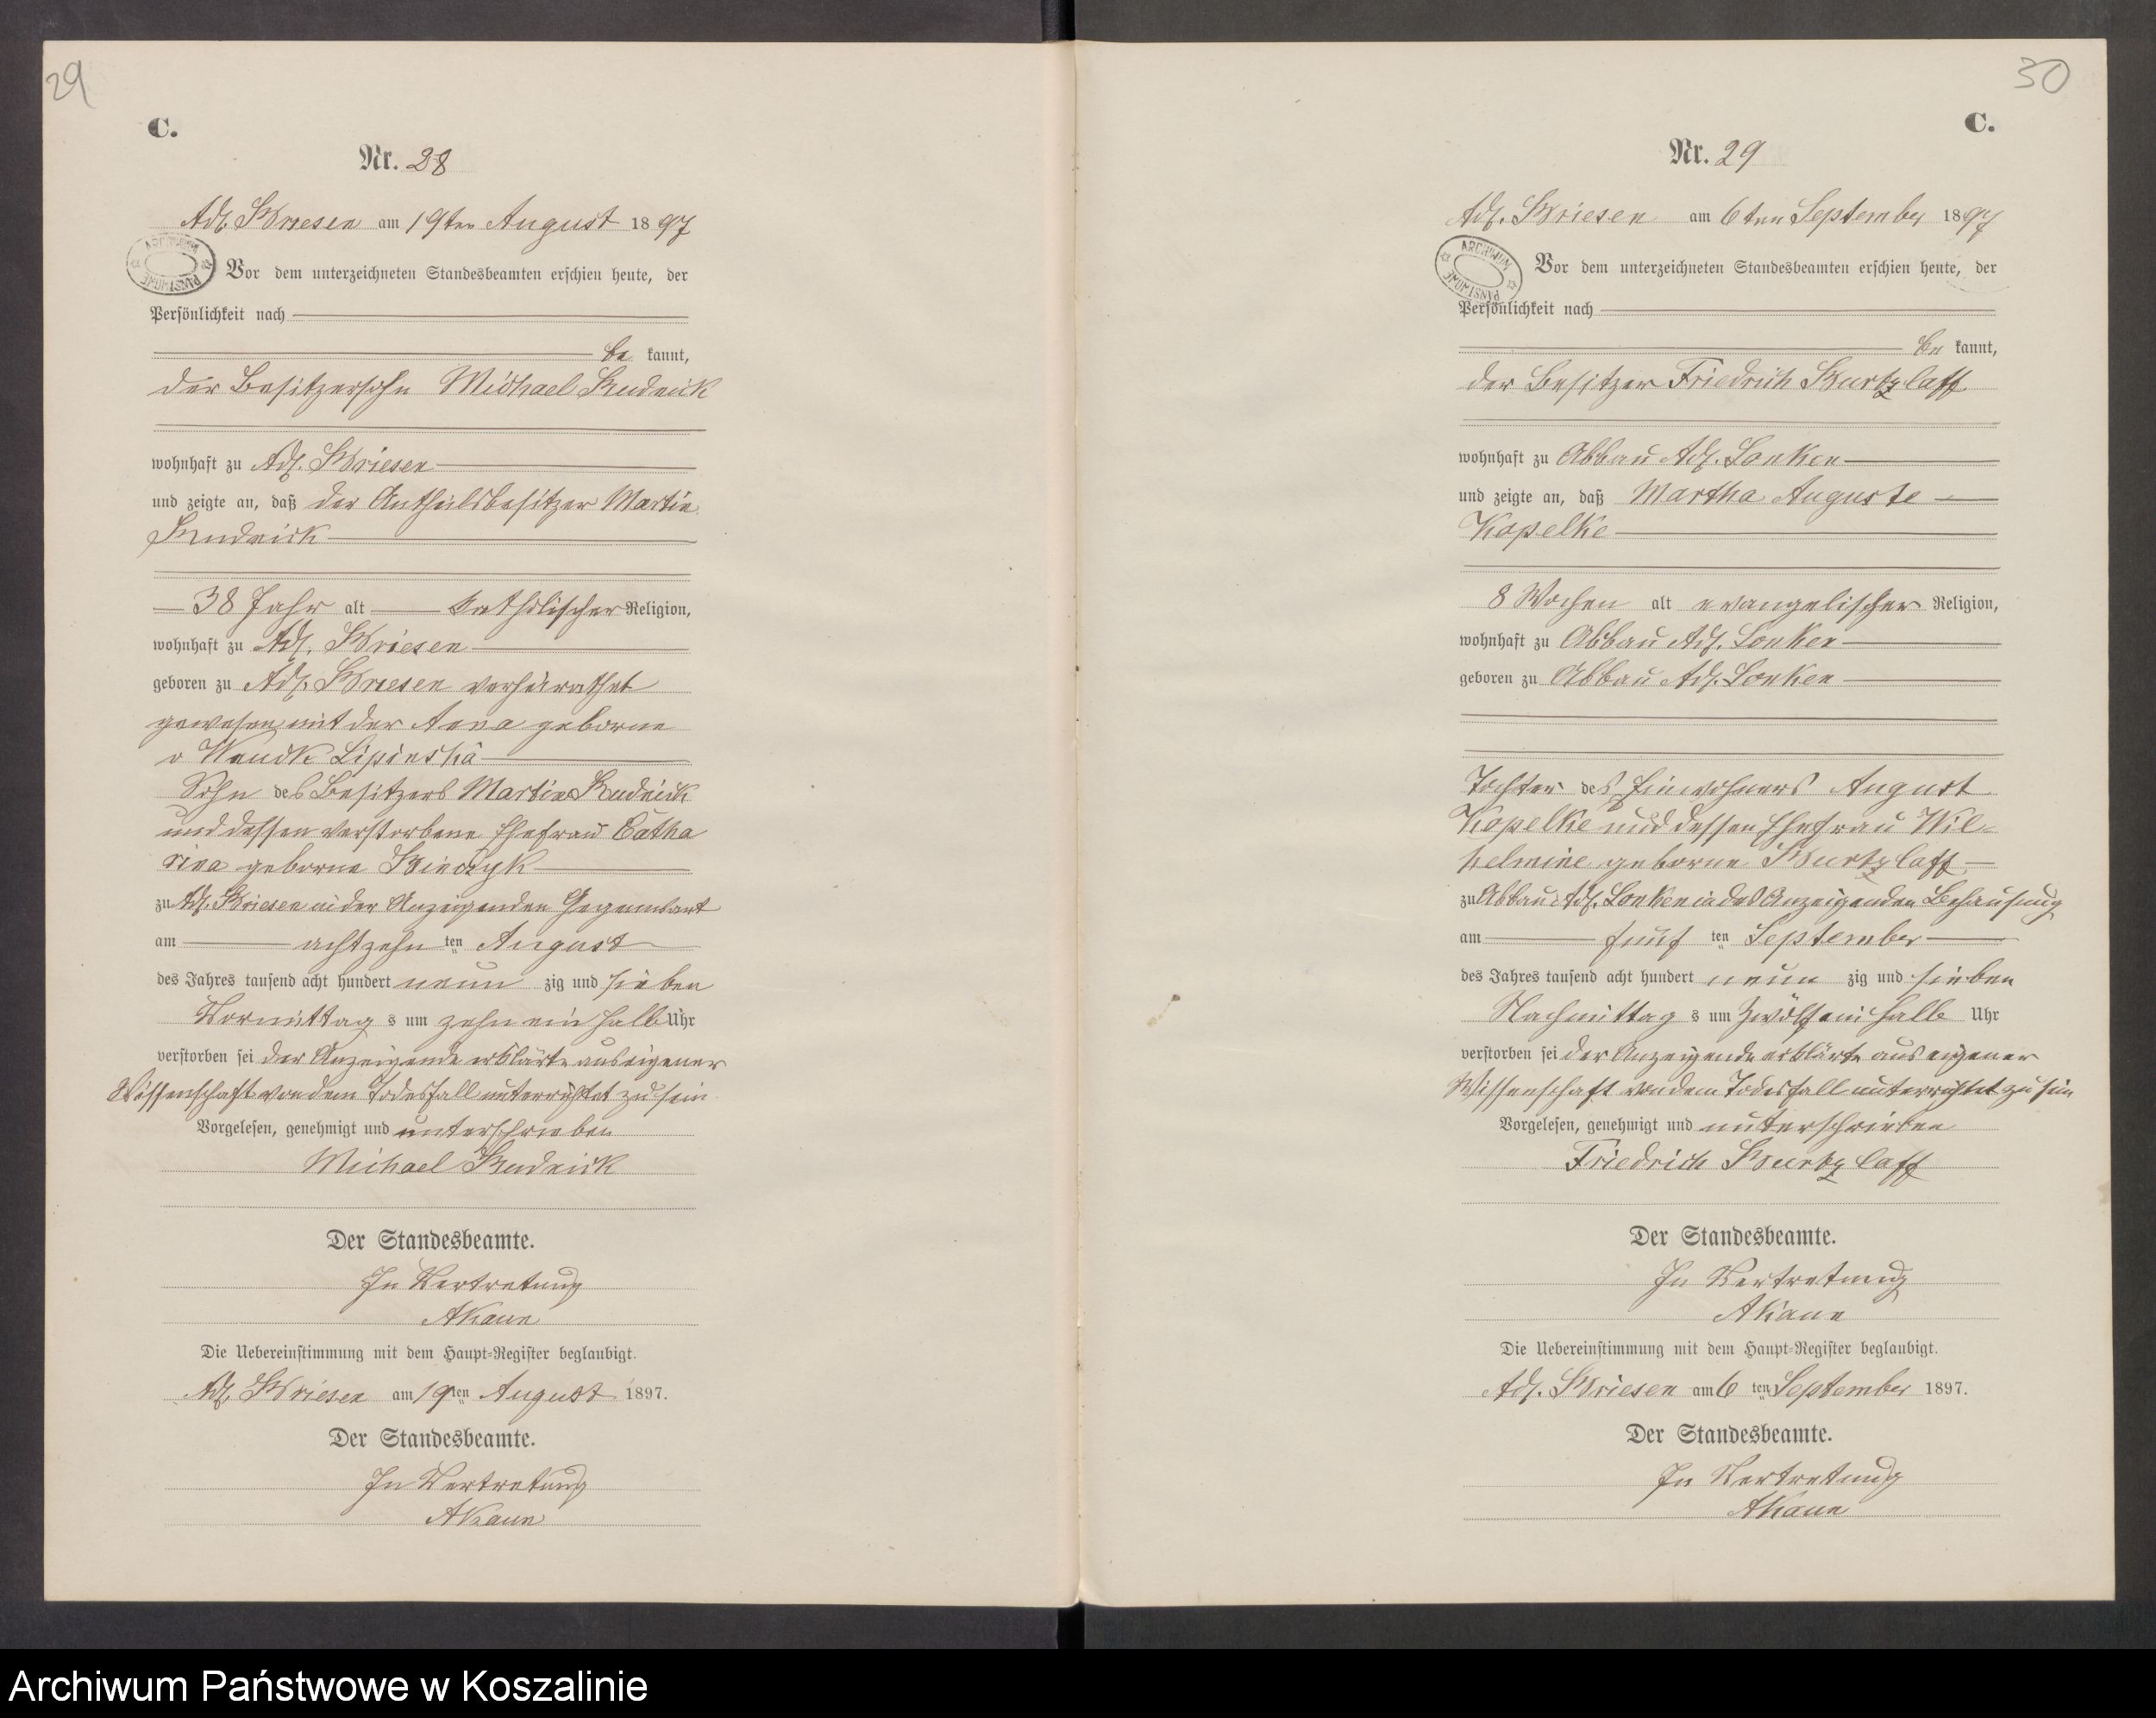 29
C.
Nr. 28
Adl. Briesen am 19ten August 1897
ARCHIWUM PAŃSTWOWE
Vor dem unterzeichneten Standesbeamten erschien heute, der
Persönlichkeit nach
be kannt,
der Besitzersohn Michael Rudnick
wohnhaft zu Adl. Briesen
und zeigte an, daß der Antheilsbesitzer Martin
Rudnick
38 Jahr alt katholischer Religion,
wohnhaft zu Adl. Briesen
geboren zu Adl. Briesen verheirathet
gewesen mit der Anna geborne
v Wendk Lipinska
Sohn des Besitzers Martin Rudnick
und dessen verstorbene Ehefrau Catha
rina geborne
zu Adl. Briesen in der Anzeigenden Gegenwart
am achtzehn ten August
des Jahres tausend acht hundert neun zig und sieben
Vormittag s um zehn ein halb Uhr
verstorben sei der Anzeigende erklärte aus eigener
Wissenschaft von dem Todesfall unterrichtet zu sein
Vorgelesen, genehmigt und unterschrieben
Michael Rudnick
Der Standesbeamte.
In Vertretung
AKaun
Die Uebereinstimmung mit dem Haupt-Register beglaubigt.
Adl. Briesen am 19ten August 1897.
Der Standesbeamte.
In Vertretung
AKaun
30
C.
Nr. 29
Adl. Briesen am 6ten September 1897
ARCHIWUM PAŃSTWOWE
Vor dem unterzeichneten Standesbeamten erschien heute, der
Persönlichkeit nach
be kannt,
der Besitzer Friedrich Burtzlaff
wohnhaft zu Abbau Adl. Lonken
und zeigte an, daß Martha Auguste
Kopelke
8 Wochen alt evangelischer Religion,
wohnhaft zu Abbau Adl. Lonken
geboren zu Abbau Adl. Lonken
Tochter des Einwohners August
Kopelke und dessen Ehefrau Wil-
helmine geborne Burtzlaff
zu Abbau Adl. Lonken in des Anzeigenden Behausung
am fünf ten September
des Jahres tausend acht hundert neun zig und sieben
Nachmittag s um zwölf ein halb Uhr
verstorben sei der Anzeigende erklärte aus eigener
Wissenschaft von dem Todesfall unterrichtet zu sein
Vorgelesen, genehmigt und unterschrieben
Friedrich Burtzlaff
Der Standesbeamte.
In Vertretung
AKaun
Die Uebereinstimmung mit dem Haupt-Register beglaubigt.
Adl. Briesen am 6 ten September 1897.
Der Standesbeamte.
In Vertretung
AKaun
Archiwum Państwowe w Koszalinie